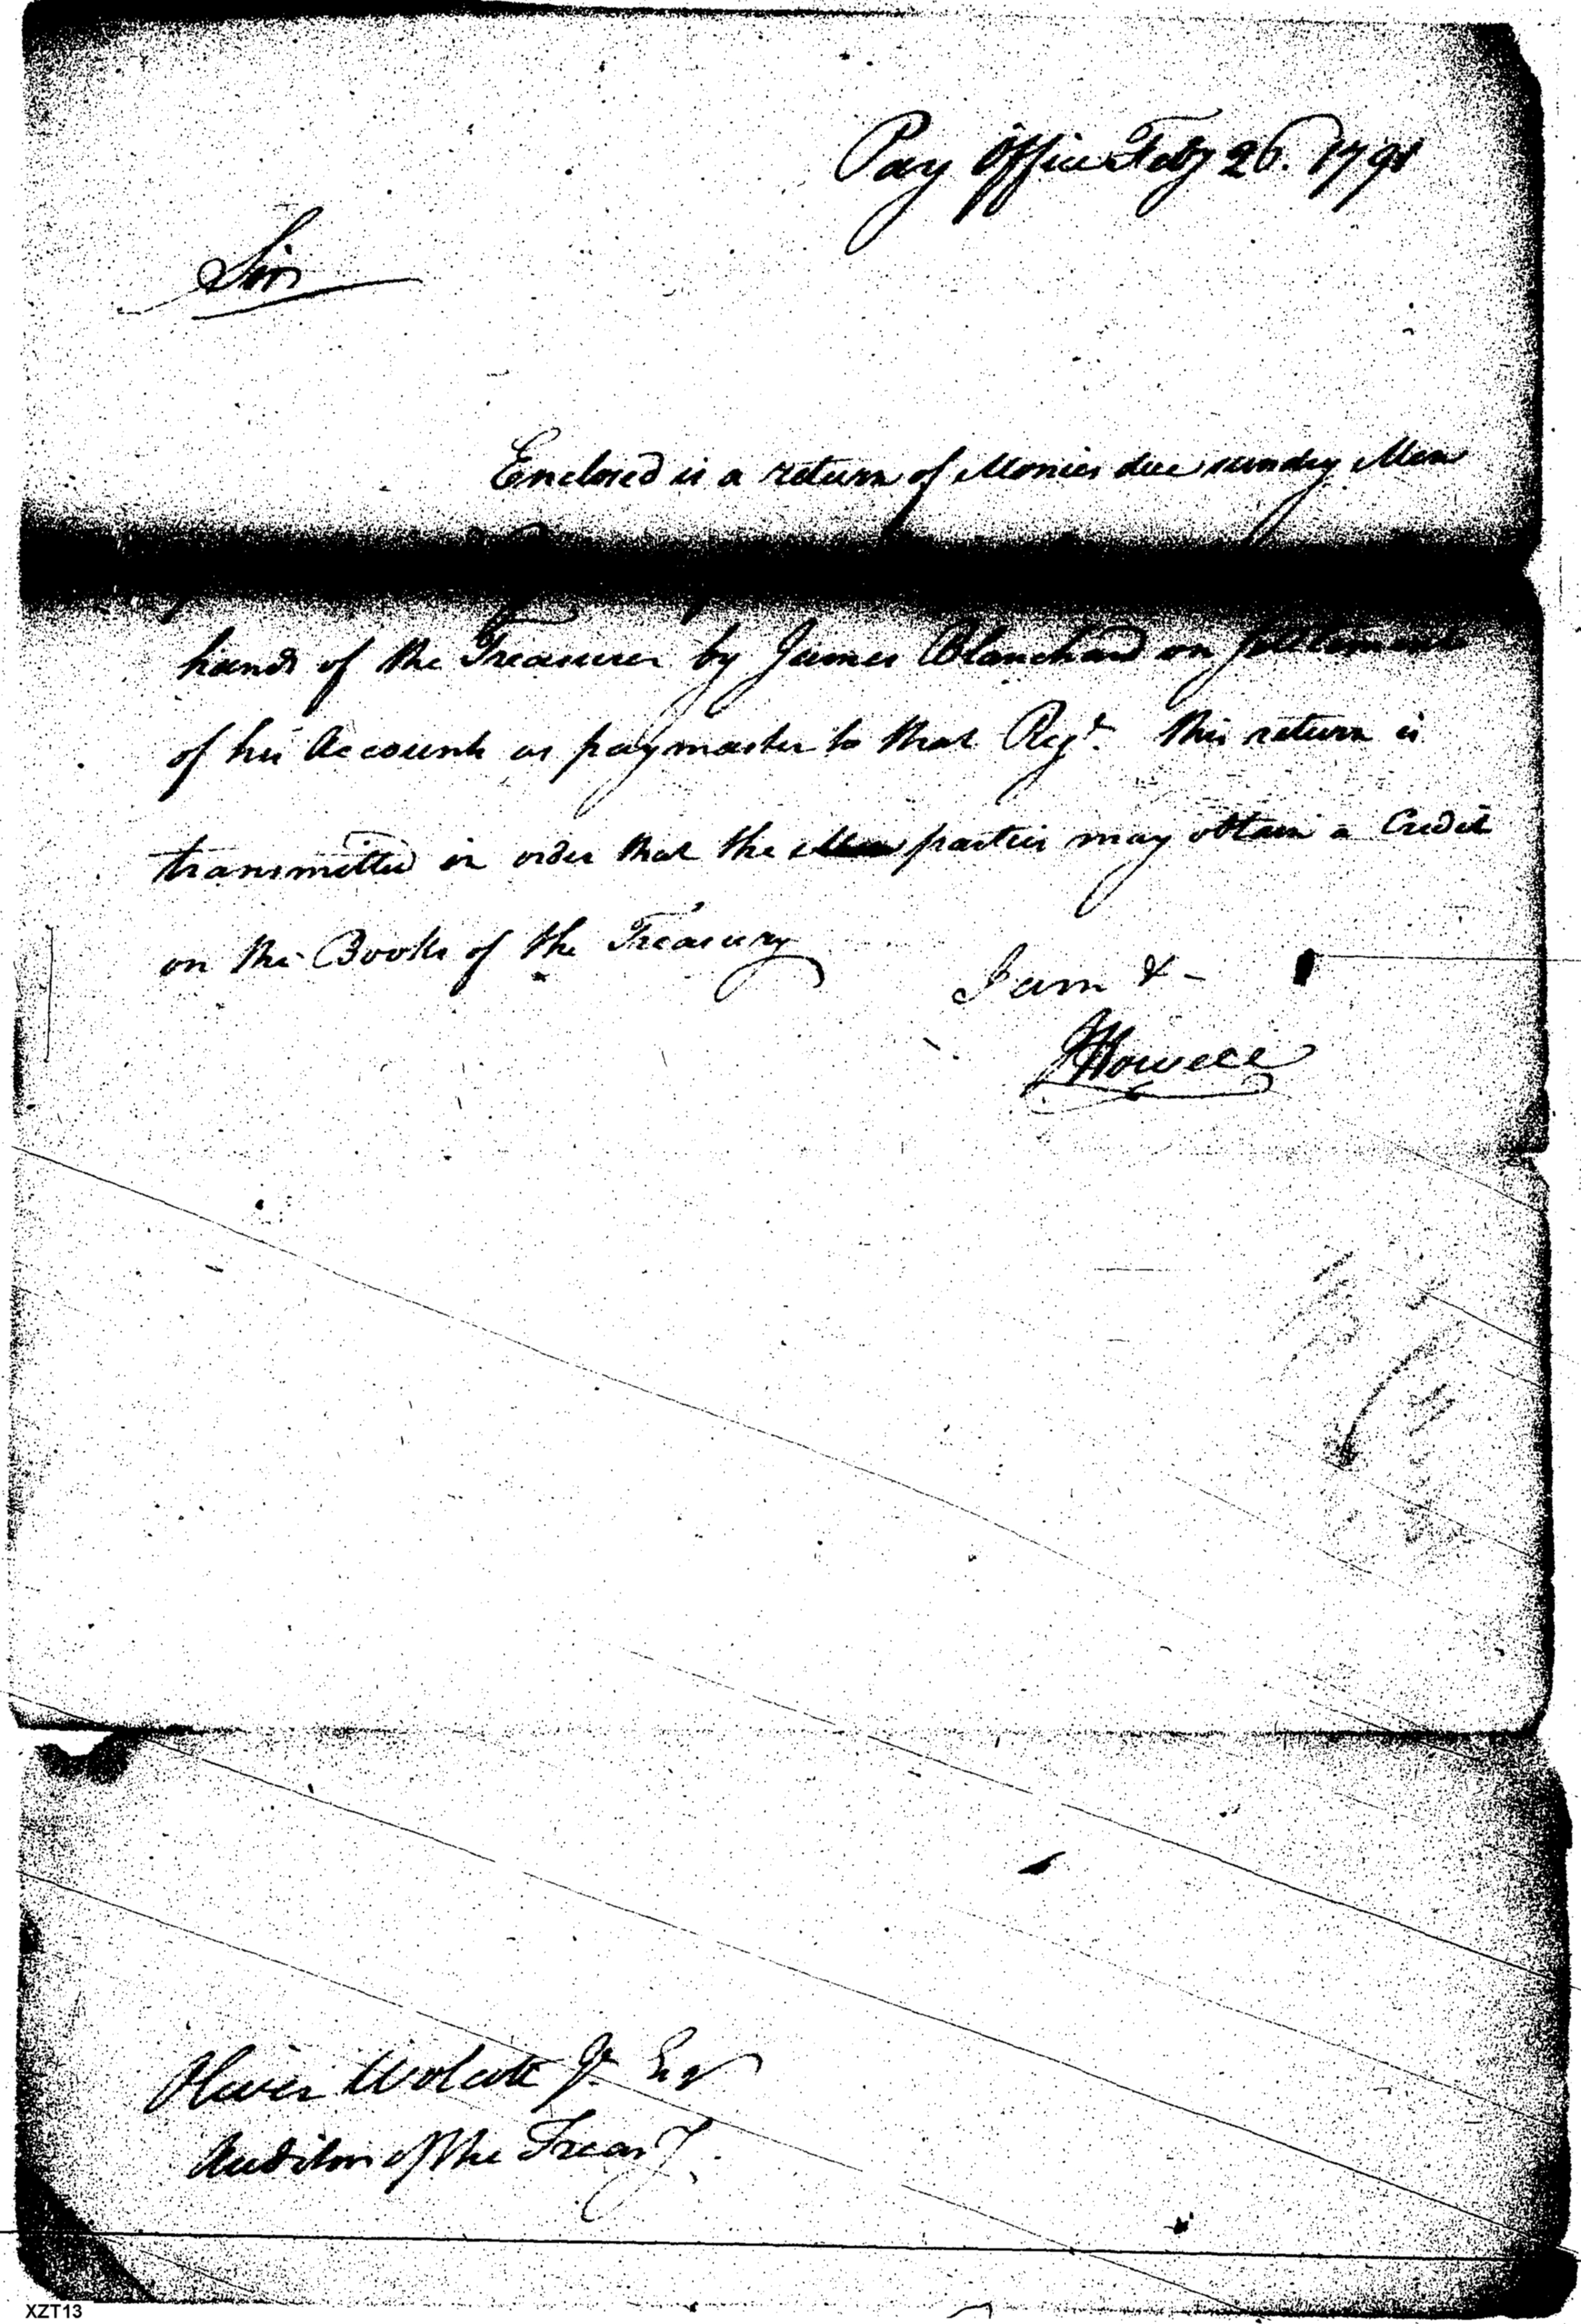 Pay Office Feby 26. 1791
Sir
Enclosed is a return of Monies due sundry Men
hands of the Treasurer by James Blanchard on Settlement
of his Accounts as paymaster to that Regt. this return is
transmitted in order that the parties may obtain a Credit
on the Books of the Treasury
I am &-
JHowell
Oliver Wolcott Jr. Esqr
Auditor of the Treasy
XZT13